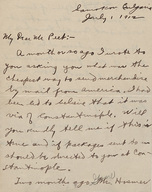 July 1, 1912
My Dear Mr Peet:-
A month or so ago I wrote to
you asking you what was the
cheapest way to send merchandise
by mail from America. I had
been led to believe that it was
via of Constantinople. Will
you kindly tell me if this is
true and if packages sent to us
should be directed to you at Con-
stantinople.
Two months ago